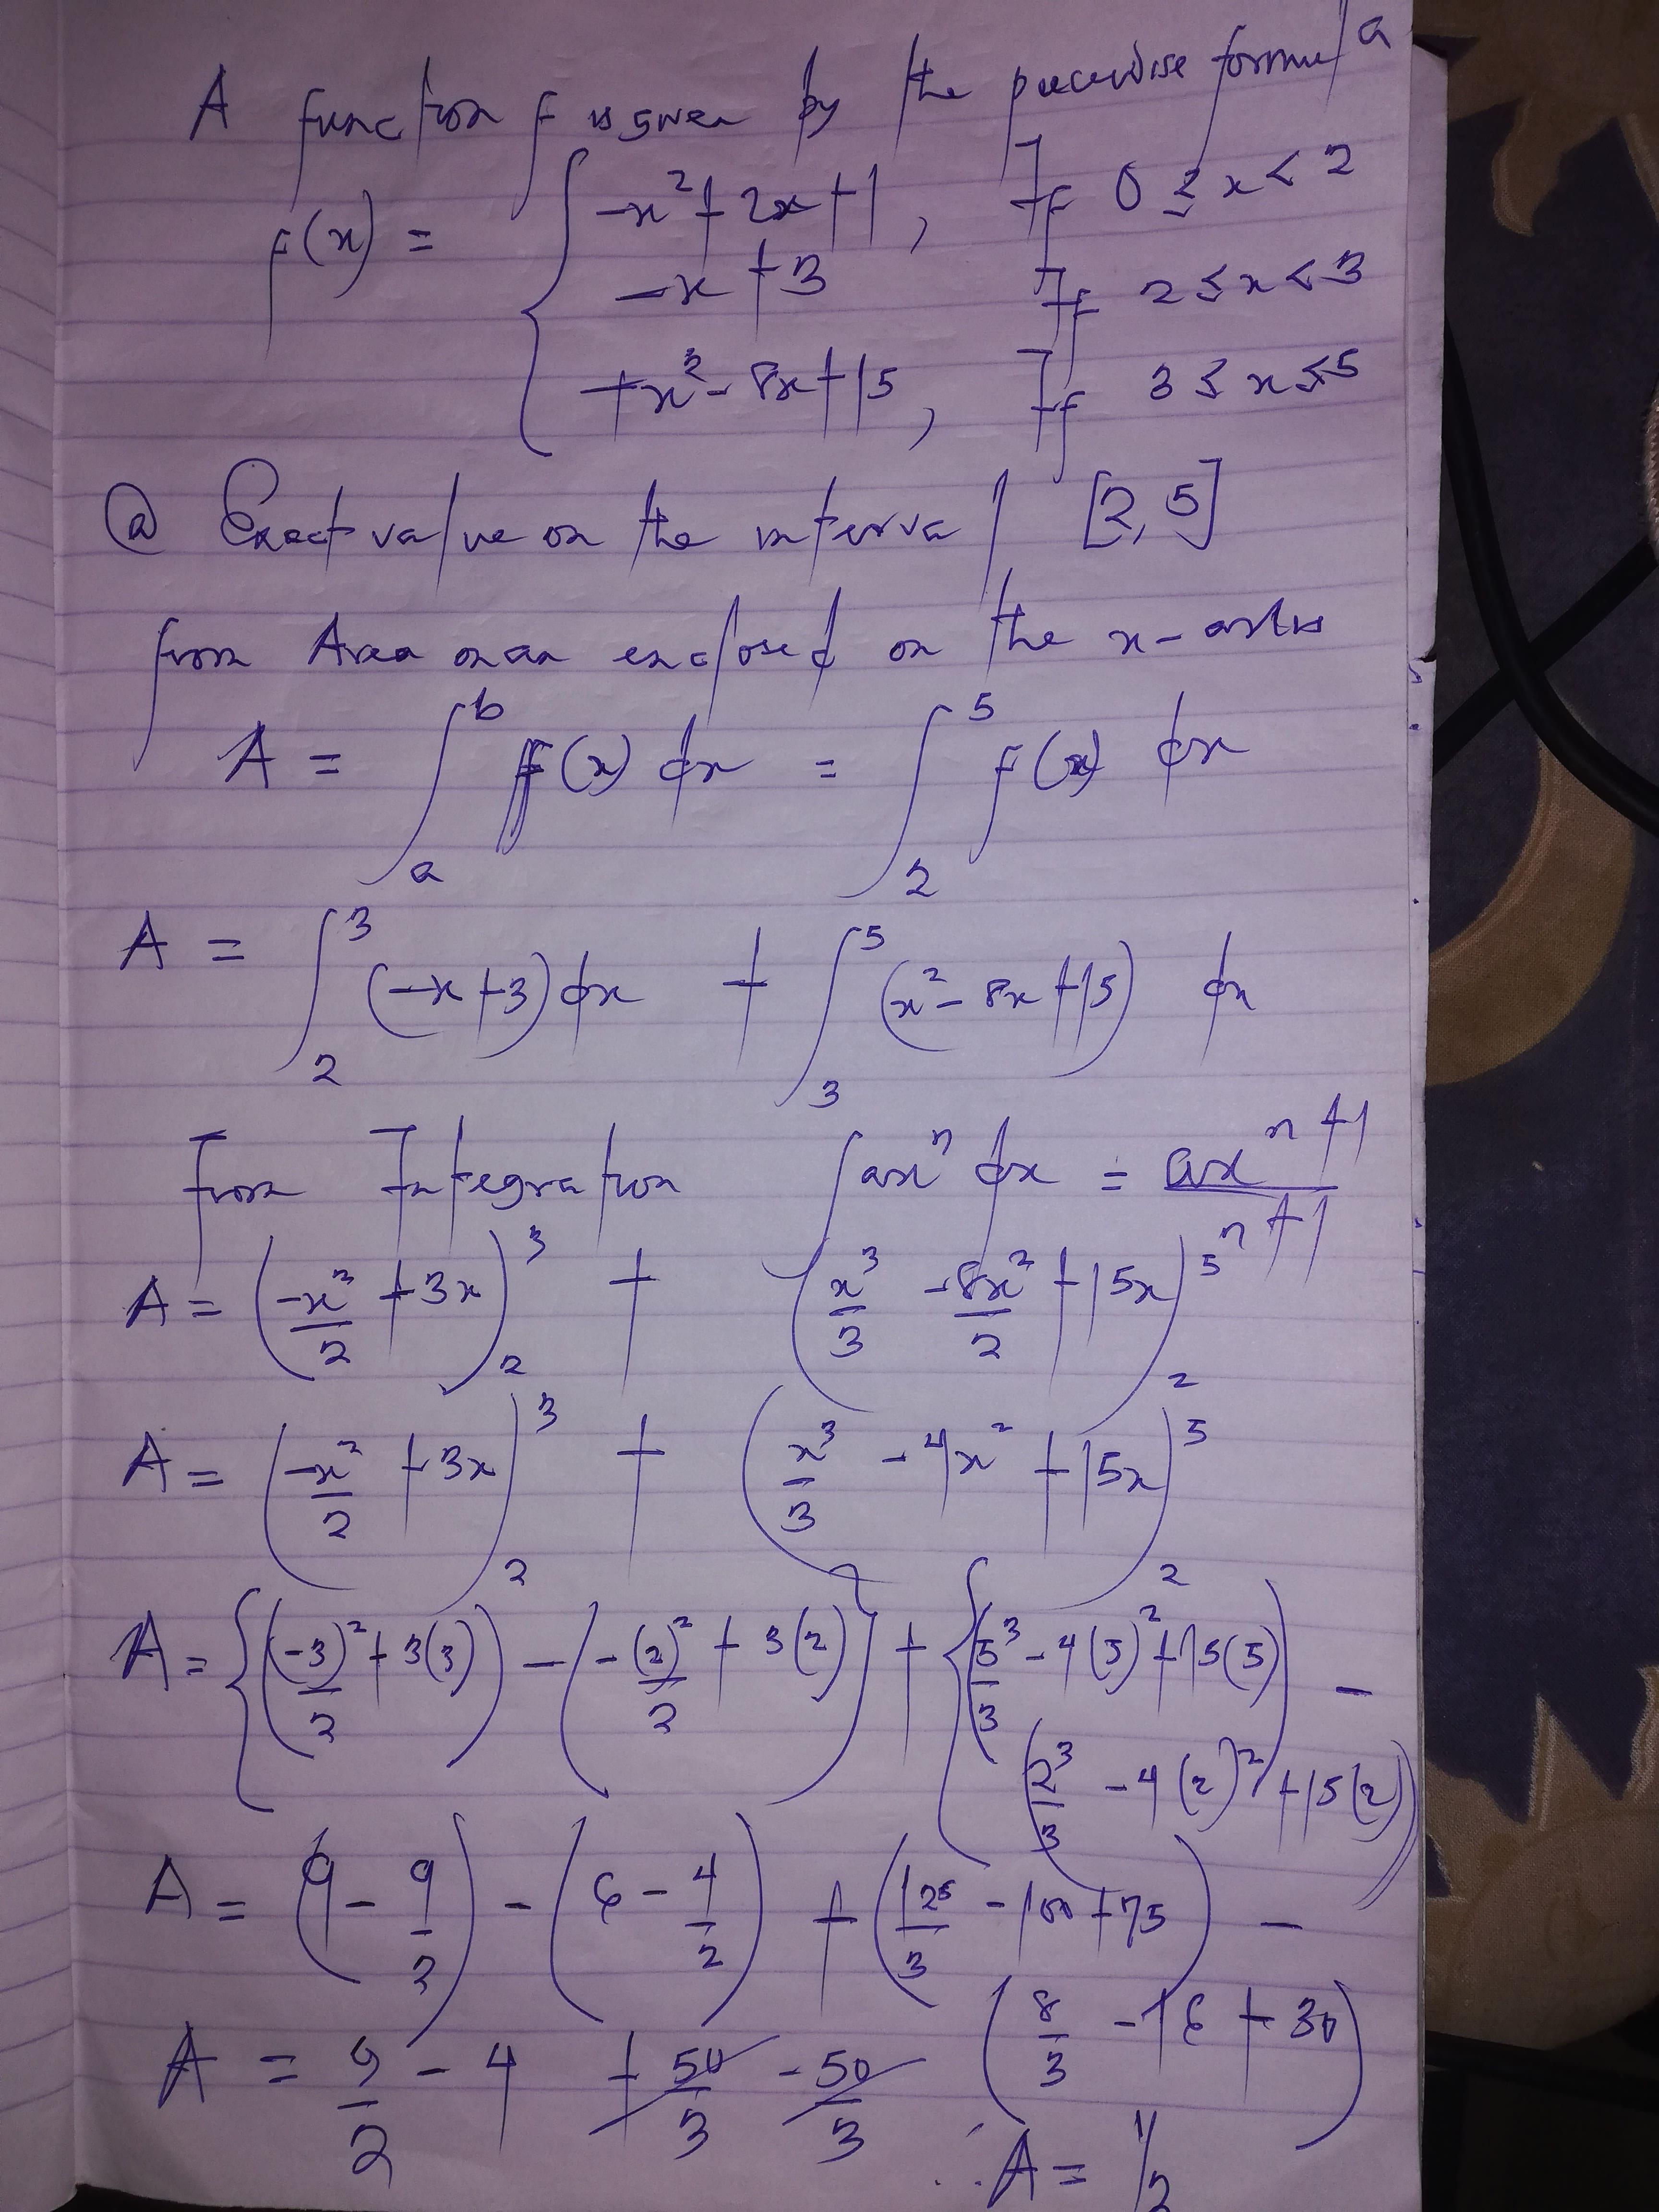 A function f is given by the piecewise formula
f(x) = { -x² + 2x + 1, If 0 ≤ x < 2
-x + 3 If 2 ≤ x < 3
+x² - 8x + 15, If 3 ≤ x ≤ 5
ⓐ Exact value on the interval [2, 5]
from Area on an enclosed on the x-axis
A = ∫_a^b f(x) dx = ∫_2^5 f(x) dx
A = ∫_2^3 (-x + 3) dx + ∫_3^5 (x² - 8x + 15) dx
From Integration ∫ax^n dx = ax^(n+1)/(n+1)
A = (-x²/2 + 3x)_2^3 + (x³/3 - 8x²/2 + 15x)_2^5
A = (-x²/2 + 3x)_2^3 + (x³/3 - 4x² + 15x)_2^5
A = {((-3)²/2 + 3(3)) - (-(2)²/2 + 3(2))} + {(5³/3 - 4(5)² + 15(5)) -
(2³/3 - 4(2)² + 15(2))
A = (9 - 9/2) - (6 - 4/2) + (125/3 - 100 + 75) -
(8/3 - 16 + 30)
A = 9/2 - 4 + 50/3 - 50/3
∴ A = 1/2